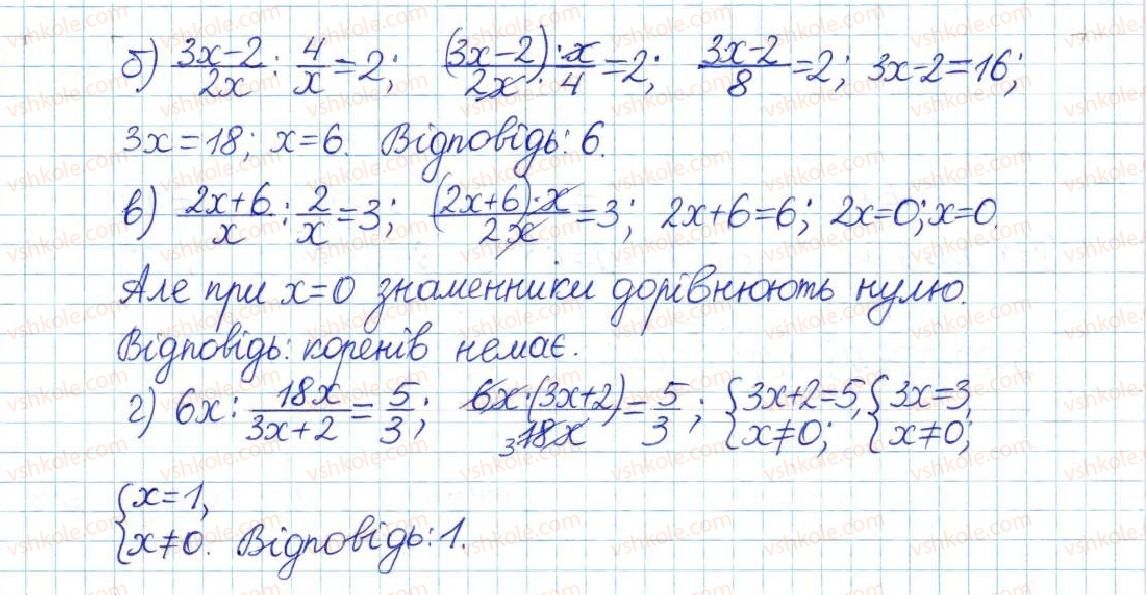 б) (3x-2)/(2x) : 4/x = 2; ((3x-2)·x)/(2x·4) = 2; (3x-2)/8 = 2; 3x-2=16;
3x=18; x=6. Відповідь: 6.
в) (2x+6)/x : 2/x = 3; ((2x+6)·x)/(2x) = 3; 2x+6=6; 2x=0; x=0.
Але при x=0 знаменники дорівнюють нулю.
Відповідь: коренів немає.
г) 6x : 18x/(3x+2) = 5/3; (6x·(3x+2))/(18x) = 5/3; {3x+2=5, x≠0; {3x=3, x≠0;
{x=1, x≠0. Відповідь: 1.